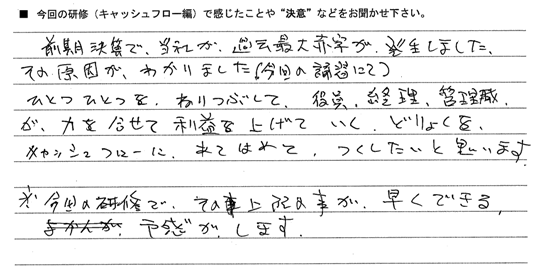 ■ 今回の研修（キャッシュフロー編）で感じたことや“決意”などをお聞かせ下さい。
前期決算で、当社が、過去最大赤字が、発生しました、
その原因が、わかりました（今回の講習にて）
ひとつひとつを、ぬりつぶして、役員、経理、管理職、
が、力を合せて利益を上げていく、どりょくを、
キャッシュフローに、あてはめて、つくしたいと思います
※今回の研修で、その事上記の事が、早くできる、
よかんが、予感がします.